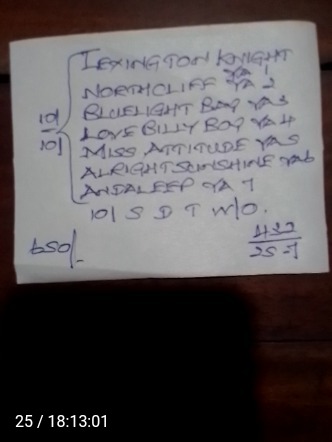 LEXINGTON KNIGHT
YA 1
NORTHCLIFF YA 2
BLUELIGHT BAY YA3
10/
101
LOVE BILLY BOY YA 4
MISS ATTITUDE YA5
ALRIGHTSUNSHINE YA6
ANDALEEP YA 7
10/ S D T W/O.
650/-
432
25-7
25 / 18:13:01